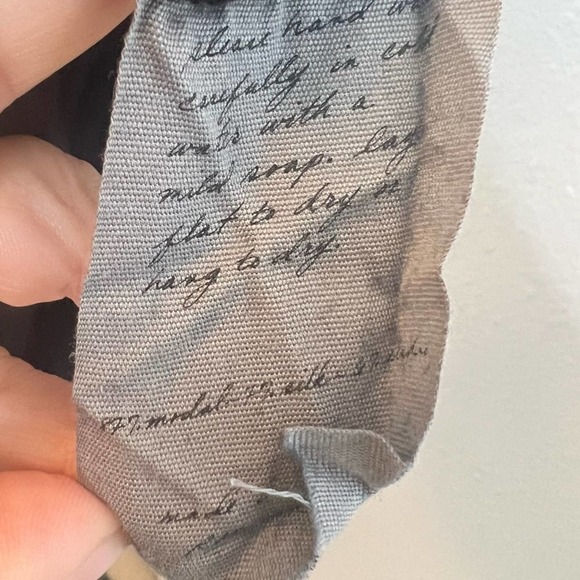 please hand
carefully in cold
water with a
mild soap. lay
flat to dry or
hang to dry.
87% modal 7% silk
made